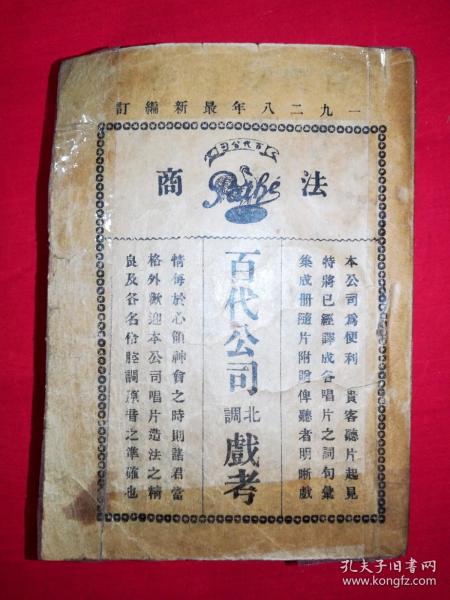 一九二八年最新編訂
百代公司
法 Pathé 商
本公司為便利 貴客聽片起見
特將已經譯成各唱片之詞句彙
集成册隨片附贈俾聽者明晰戲
百代公司北調戲考
情每於心領神會之時則諸君當
格外歡迎本公司唱片造法之精
良及各名伶腔調原音之準確也
孔夫子旧书网
www.kongfz.com